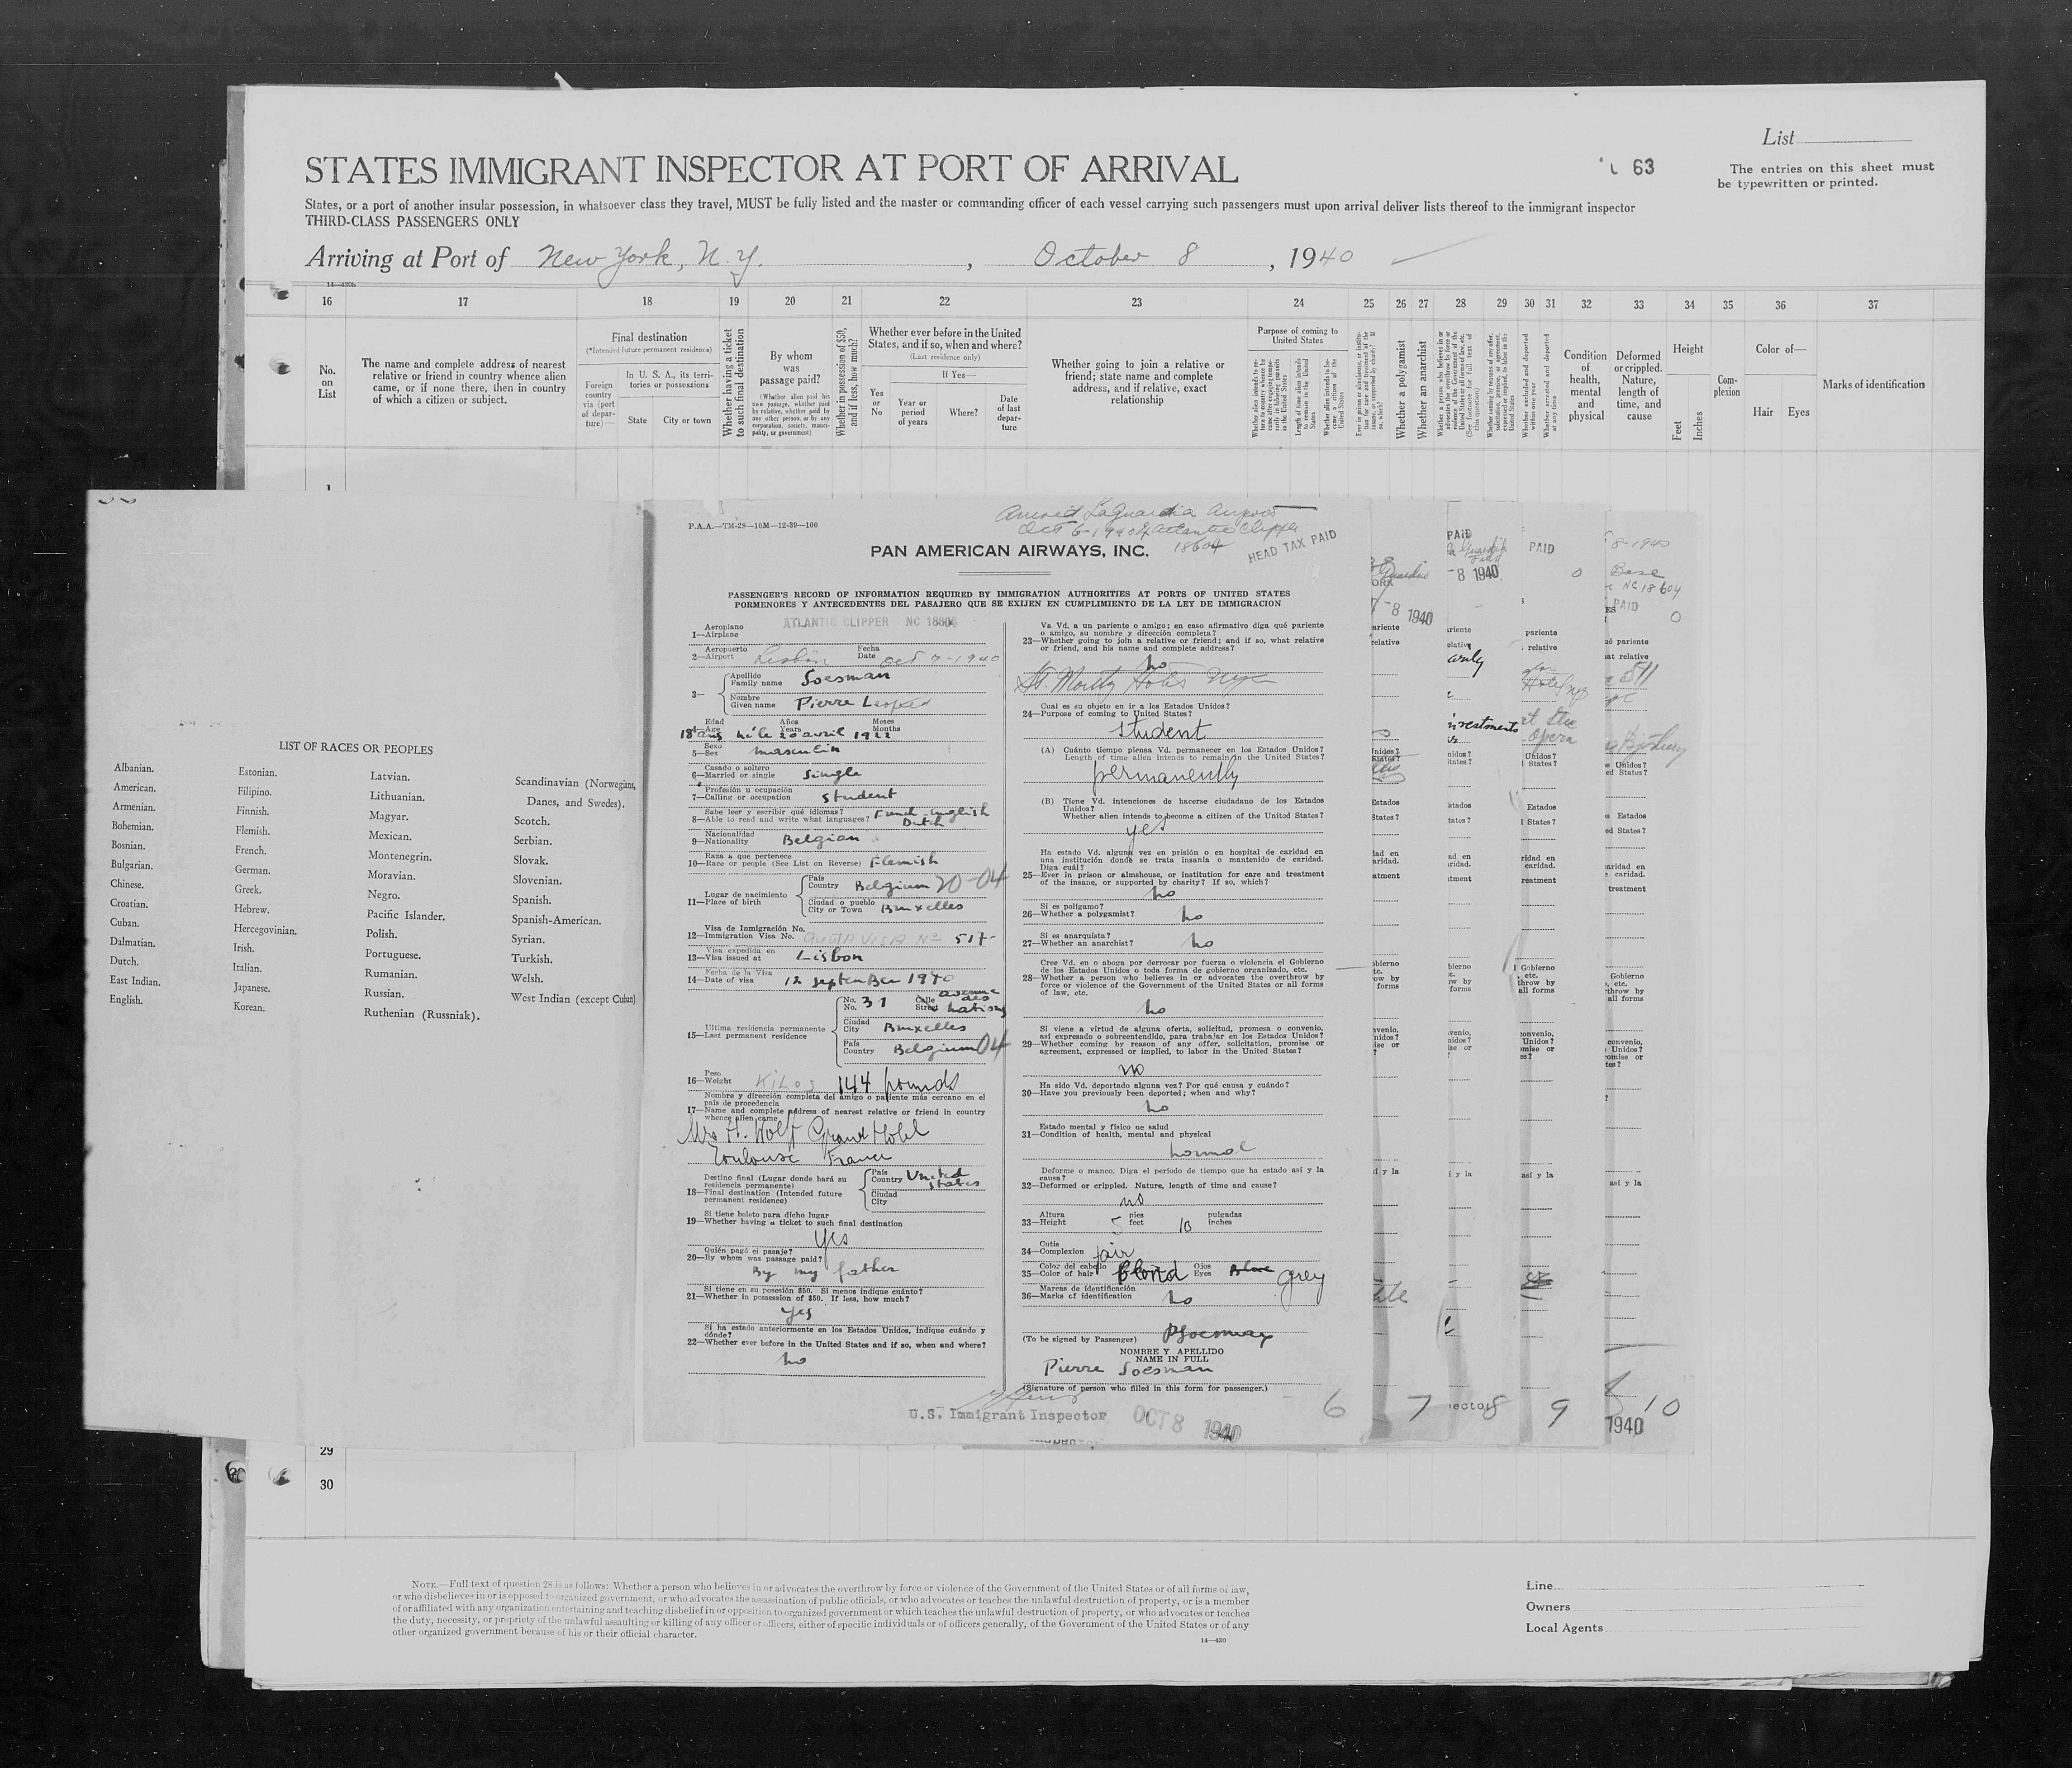 List
STATES IMMIGRANT INSPECTOR AT PORT OF ARRIVAL
63
The entries on this sheet must
be typewritten or printed.
States, or a port of another insular possession, in whatsoever class they travel, MUST be fully listed and the master or commanding officer of each vessel carrying such passengers must upon arrival deliver lists thereof to the immigrant inspector
THIRD-CLASS PASSENGERS ONLY
Arriving at Port of New York, N.Y., October 8, 1940
16 17 18 19 20 21 22 23 24 25 26 27 28 29 30 31 32 33 34 35 36 37
No. on List
The name and complete address of nearest
relative or friend in country whence alien
came, or if none there, then in country
of which a citizen or subject.
Final destination
(*Intended future permanent residence)
Foreign country via (port of departure)—
In U. S. A., its territories or possessions
State
City or town
Whether having a ticket
to such final destination
By whom was passage paid?
(Whether alien paid his own passage, whether paid by relative, whether paid by any other person, or by any corporation, society, municipality, or government)
Whether in possession of $50,
and if less, how much?
Whether ever before in the United
States, and if so, when and where?
(Last residence only)
Yes or No
If Yes—
Year or period of years
Where?
Date of last departure
Whether going to join a relative or
friend; state name and complete
address, and if relative, exact
relationship
Purpose of coming to
United States
Whether a polygamist
Whether an anarchist
Condition of health, mental and physical
Deformed or crippled. Nature, length of time, and cause
Height
Feet
Inches
Complexion
Color of—
Hair Eyes
Marks of identification
LIST OF RACES OR PEOPLES
Albanian.
American.
Armenian.
Bohemian.
Bosnian.
Bulgarian.
Chinese.
Croatian.
Cuban.
Dalmatian.
Dutch.
East Indian.
English.
Estonian.
Filipino.
Finnish.
Flemish.
French.
German.
Greek.
Hebrew.
Hercegovinian.
Irish.
Italian.
Japanese.
Korean.
Latvian.
Lithuanian.
Magyar.
Mexican.
Montenegrin.
Moravian.
Negro.
Pacific Islander.
Polish.
Portuguese.
Rumanian.
Russian.
Ruthenian (Russniak).
Scandinavian (Norwegians,
Danes, and Swedes).
Scotch.
Serbian.
Slovak.
Slovenian.
Spanish.
Spanish-American.
Syrian.
Turkish.
Welsh.
West Indian (except Cuban)
P.A.A.—TM-28—10M—12-39—100
Arrived LaGuardia Airport
Oct 6-1940 Atlantic Clipper
18604
HEAD TAX PAID
PAN AMERICAN AIRWAYS, INC.
PASSENGER'S RECORD OF INFORMATION REQUIRED BY IMMIGRATION AUTHORITIES AT PORTS OF UNITED STATES
PORMENORES Y ANTECEDENTES DEL PASAJERO QUE SE EXIJEN EN CUMPLIMIENTO DE LA LEY DE IMMIGRACION
Aeroplano
1—Airplane ATLANTIC CLIPPER NC 18604
Aeropuerto Fecha
2—Airport Lisbon Date Oct 7-1940
Apellido
3— Family name Soesman
Nombre
Given name Pierre Leopold
Edad Años Meses
4—Age Years Months
18 ans né le 20 avril 1922
Sexo
5—Sex masculin
Casado o soltero
6—Married or single single
Profesión u ocupación
7—Calling or occupation student
Sabe leer y escribir qué idiomas?
8—Able to read and write what languages? French - English
Dutch
Nacionalidad
9—Nationality Belgian
Raza a que pertenece
10—Race or people (See List on Reverse) Flemish
Lugar de nacimiento
11—Place of birth
País
Country Belgium 20-04
Ciudad o pueblo
City or Town Bruxelles
Visa de Inmigración No.
12—Immigration Visa No. QUOTA VISA No 517
Visa expedida en
13—Visa issued at Lisbon
Fecha de la Visa
14—Date of visa 12 september 1940
Ultima residencia permanente
15—Last permanent residence
No.
No. 31 Calle Street avenue des nations
Ciudad
City Bruxelles
País
Country Belgium 04
Peso
16—Weight Kilos 144 pounds
Nombre y dirección completa del amigo o pariente más cercano en el
país de procedencia
17—Name and complete address of nearest relative or friend in country
whence alien came
Mrs H. Wolff Grand Hotel
Toulouse France
Destino final (Lugar donde hará su
residencia permanente)
18—Final destination (Intended future
permanent residence)
País
Country United States
Ciudad
City
Si tiene boleto para dicho lugar
19—Whether having a ticket to such final destination
Yes
Quién pagó el pasaje?
20—By whom was passage paid?
By my father
Si tiene en su posesión $50. Si menos indique cuánto?
21—Whether in possession of $50. If less, how much?
yes
Si ha estado anteriormente en los Estados Unidos, indique cuándo y
dónde?
22—Whether ever before in the United States and if so, when and where?
no
Va Vd. a un pariente o amigo; en caso afirmativo diga qué pariente
o amigo, su nombre y dirección completa?
23—Whether going to join a relative or friend; and if so, what relative
or friend, and his name and complete address?
no
St. Moritz Hotel NYC
Cual es su objeto en ir a los Estados Unidos?
24—Purpose of coming to United States?
student
(A) Cuánto tiempo piensa Vd. permanecer en los Estados Unidos?
Length of time alien intends to remain in the United States?
permanently
(B) Tiene Vd. intenciones de hacerse ciudadano de los Estados
Unidos?
Whether alien intends to become a citizen of the United States?
yes
Ha estado Vd. alguna vez en prisión o en hospital de caridad en
una institución donde se trata insania o mantenido de caridad.
Diga cuál?
25—Ever in prison or almshouse, or institution for care and treatment
of the insane, or supported by charity? If so, which?
no
Si es polígamo?
26—Whether a polygamist? no
Si es anarquista?
27—Whether an anarchist? no
Cree Vd. en o aboga por derrocar por fuerza o violencia el Gobierno
de los Estados Unidos o toda forma de gobierno organizado, etc.
28—Whether a person who believes in or advocates the overthrow by
force or violence of the Government of the United States or all forms
of law, etc.
no
Si viene a virtud de alguna oferta, solicitud, promesa o convenio,
así expresado o sobreentendido, para trabajar en los Estados Unidos?
29—Whether coming by reason of any offer, solicitation, promise or
agreement, expressed or implied, to labor in the United States?
no
Ha sido Vd. deportado alguna vez? Por qué causa y cuándo?
30—Have you previously been deported; when and why?
no
Estado mental y físico de salud
31—Condition of health, mental and physical
normal
Deforme o manco. Diga el período de tiempo que ha estado así y la
causa?
32—Deformed or crippled. Nature, length of time and cause?
no
Altura pies pulgadas
33—Height 5 feet 10 inches
Cutis
34—Complexion fair
Color del cabello Ojos
35—Color of hair blond Eyes Blue grey
Marcas de identificación
36—Marks of identification no
(To be signed by Passenger) PSoesman
NOMBRE Y APELLIDO
NAME IN FULL
Pierre Soesman
(Signature of person who filled in this form for passenger.)
U.S. Immigrant Inspector OCT 8 1940
6 7 8 9 10
1940
29
30
NOTE.—Full text of question 28 is as follows: Whether a person who believes in or advocates the overthrow by force or violence of the Government of the United States or of all forms of law,
or who disbelieves in or is opposed to organized government, or who advocates the assassination of public officials, or who advocates or teaches the unlawful destruction of property, or is a member
of or affiliated with any organization entertaining and teaching disbelief in or opposition to organized government or which teaches the unlawful destruction of property, or who advocates or teaches
the duty, necessity, or propriety of the unlawful assaulting or killing of any officer or officers, either of specific individuals or of officers generally, of the Government of the United States or of any
other organized government because of his or their official character.
14—430
Line
Owners
Local Agents